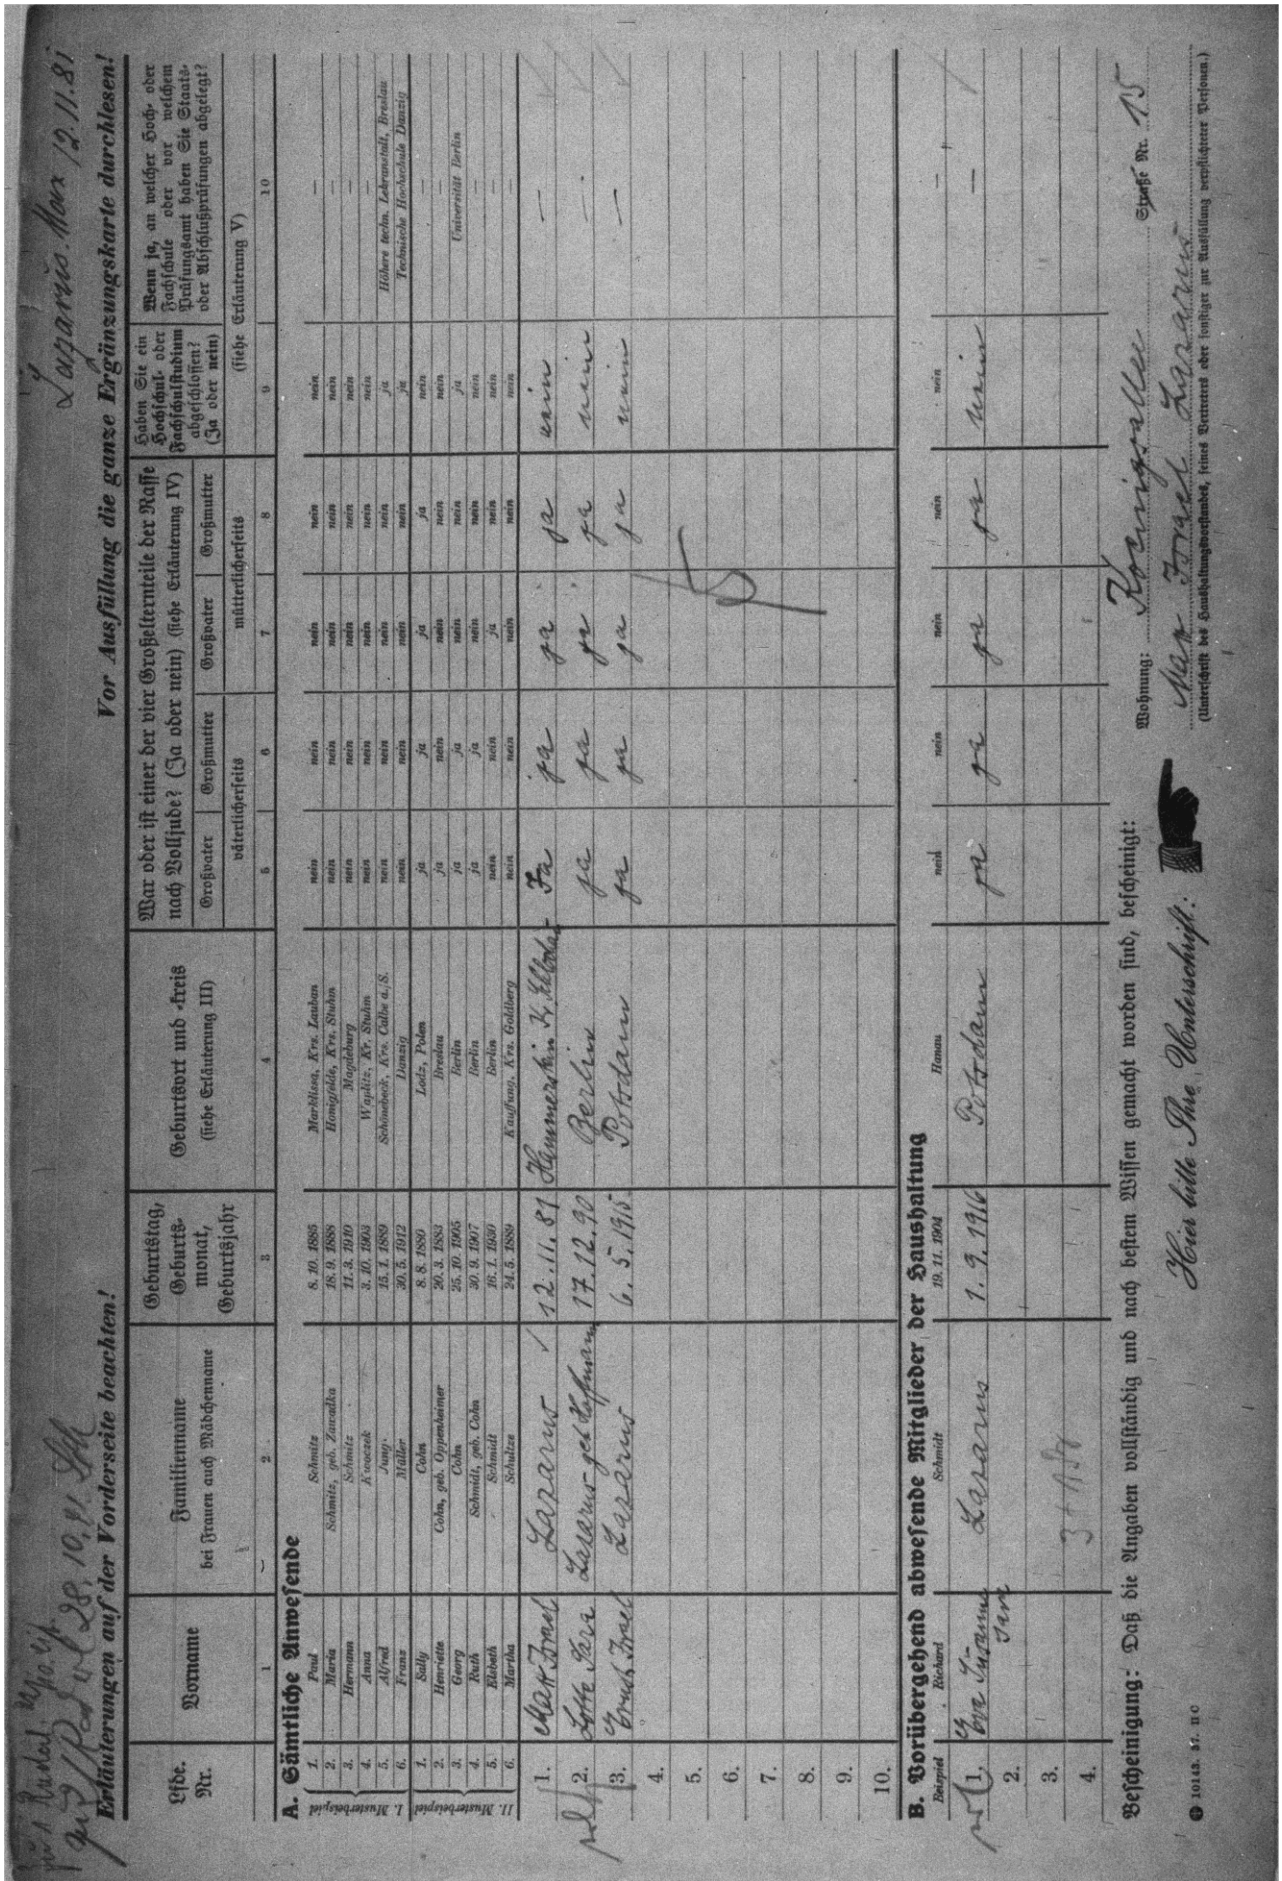 Lazarus. Max 12.11.81
Erläuterungen auf der Vorderseite beachten! Vor Ausfüllung die ganze Ergänzungskarte durchlesen!
Lfde. Nr.
Vorname
Familienname
bei Frauen auch Mädchenname
Geburtstag, Geburts-
monat,
Geburtsjahr
Geburtsort und -kreis
(siehe Erläuterung III)
War oder ist einer der vier Großelternteile der Rasse
nach Volljude? (Ja oder nein) (siehe Erläuterung IV)
Großvater Großmutter Großvater Großmutter
väterlicherseits mütterlicherseits
Haben Sie ein
Hochschul- oder
Fachschulstudium
abgeschlossen?
(Ja oder nein)
Wenn ja, an welcher Hoch- oder
Fachschule oder vor welchem
Prüfungsamt haben Sie Staats-
oder Abschlußprüfungen abgelegt?
(siehe Erläuterung V)
1 2 3 4 5 6 7 8 9 10
A. Sämtliche Anwesende
I. Musterbeispiel
1. Paul Schmitz 8. 10. 1885 Marklissa, Krs. Lauban nein nein nein nein nein —
2. Maria Schmitz, geb. Zawadka 18. 9. 1888 Honigfelde, Krs. Stuhm nein nein nein nein nein —
3. Hermann Schmitz 11. 3. 1910 Magdeburg nein nein nein nein nein —
4. Anna Kwaczek 3. 10. 1903 Waplitz, Kr. Stuhm nein nein nein nein nein —
5. Alfred Jung 15. 1. 1889 Schönebeck, Krs. Calbe a./S. nein nein nein nein ja Höhere techn. Lehranstalt, Breslau
6. Franz Müller 30. 5. 1912 Danzig nein nein nein nein ja Technische Hochschule Danzig
II. Musterbeispiel
1. Sally Cohn 8. 8. 1880 Lodz, Polen ja ja ja ja nein —
2. Henriette Cohn, geb. Oppenheimer 20. 3. 1883 Breslau ja nein nein nein nein —
3. Georg Cohn 25. 10. 1905 Berlin ja ja nein nein ja Universität Berlin
4. Ruth Schmidt, geb. Cohn 30. 9. 1907 Berlin ja ja nein nein nein —
5. Elsbeth Schmidt 16. 1. 1930 Berlin nein nein ja nein nein —
6. Martha Schultze 24. 5. 1889 Kauffung, Krs. Goldberg nein nein nein nein nein —
1. Max Israel Lazarus 12. 11. 81 Hammerstein Kr. Ja ja ja ja nein —
2. Lotte Sara Lazarus geb. Hoffmann 17. 12. 90 Berlin ja ja ja ja nein —
3. Ernst Israel Lazarus 6. 5. 1915 Potsdam ja ja ja ja nein —
4.
5.
6.
7.
8.
9.
10.
B. Vorübergehend abwesende Mitglieder der Haushaltung
Beispiel Richard Schmidt 19. 11. 1904 Hanau nein nein nein nein nein —
1. Eva Susanne Sara Lazarus 1. 9. 1916 Potsdam ja ja ja ja nein —
2.
3.
4.
Bescheinigung: Daß die Angaben vollständig und nach bestem Wissen gemacht worden sind, bescheinigt:
Wohnung: Königsallee Straße Nr. 15
Hier bitte Ihre Unterschrift: Max Israel Lazarus
(Unterschrift des Haushaltungsvorstandes, seines Vertreters oder sonstiger zur Ausfüllung verpflichteter Personen.)
10143. 57. II C